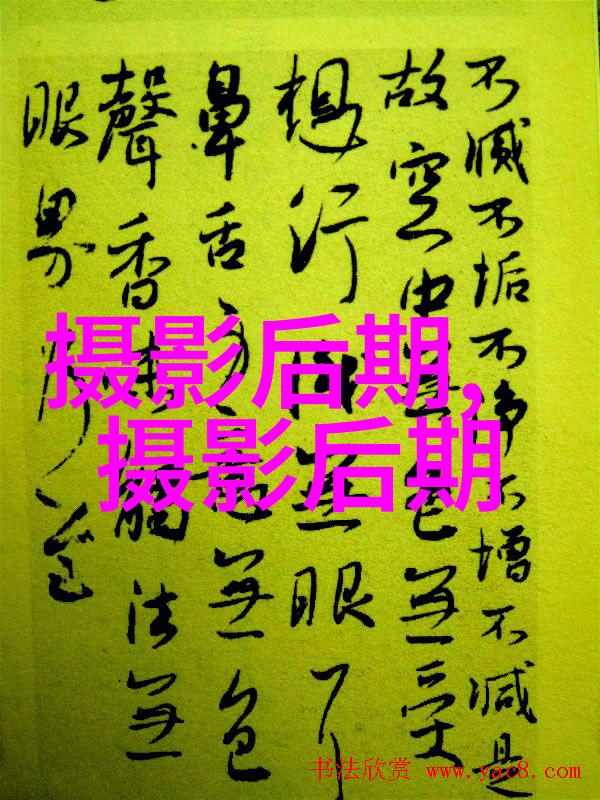 不滅不垢不净不增不減是
故空中無色無受
想行無眼耳
鼻舌身意無色
聲香味觸法無
眼界乃至
摄影后期,
摄影后期
书法欣赏 www.yac8.com